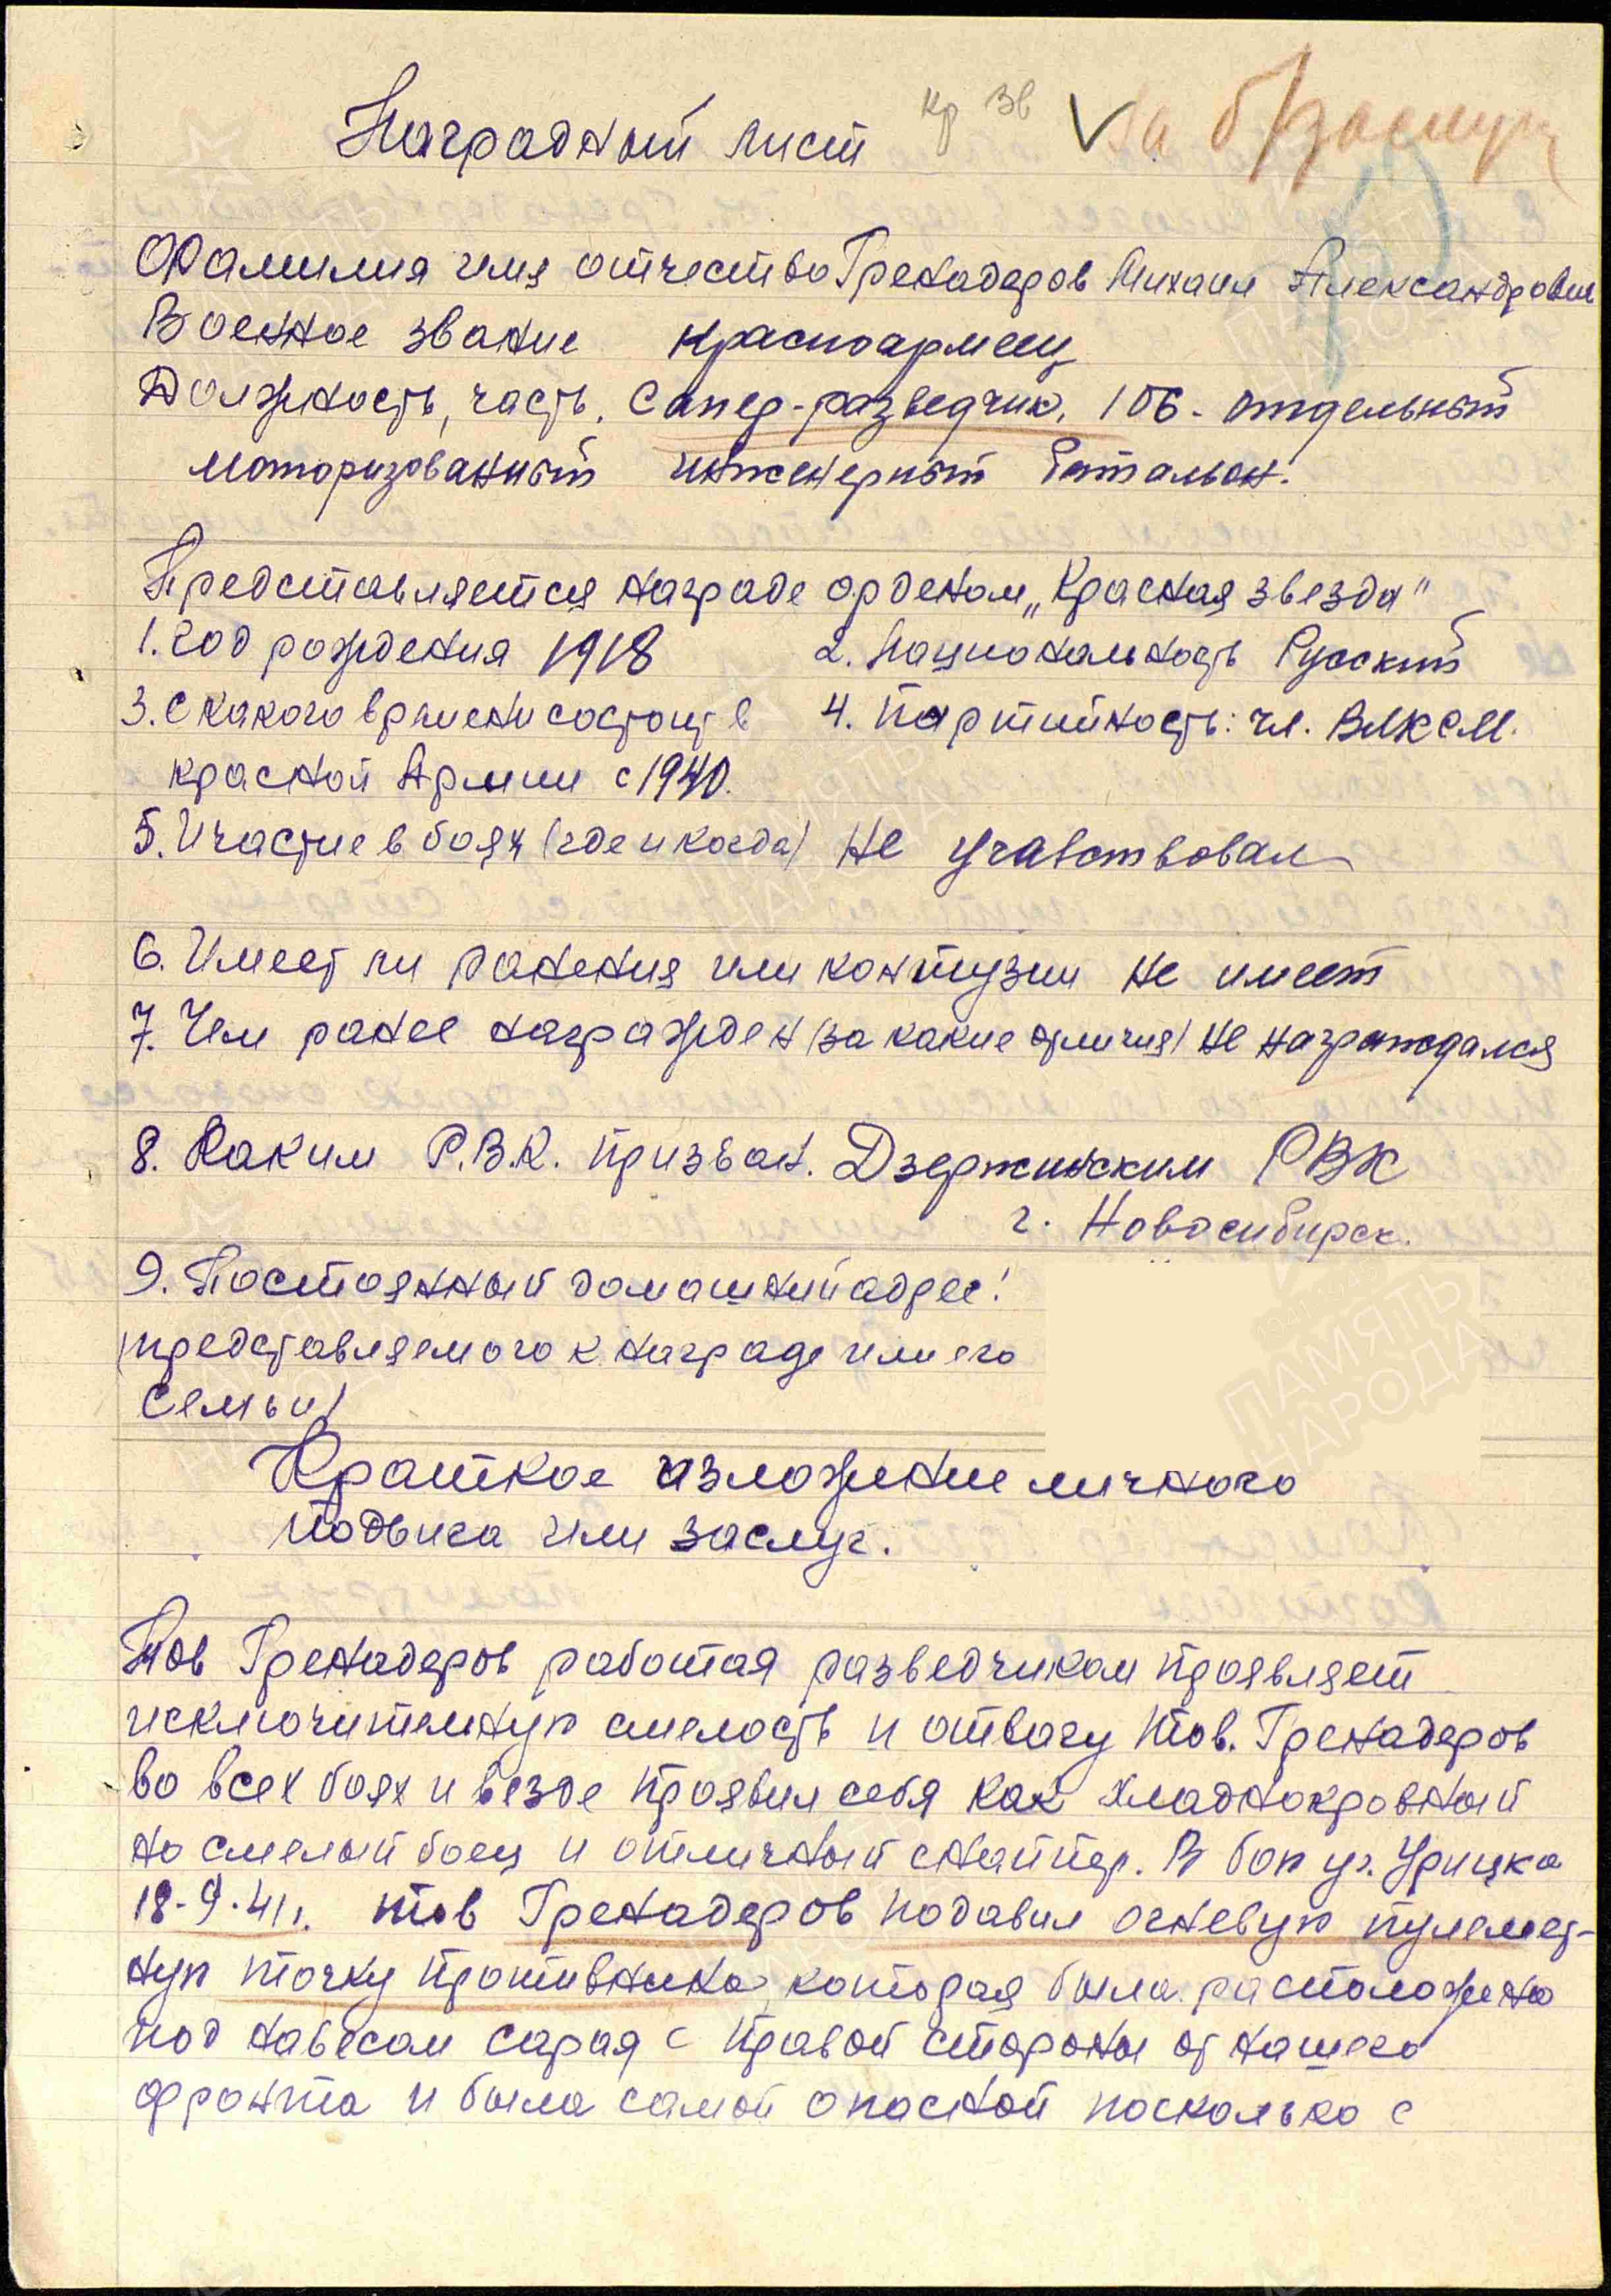 Наградный лист кр зв V За б/заслуги
Фамилия имя отчество Гренадеров Михаил Александрович
Военное звание красноармеец
Должность, часть. Сапер-разведчик, 106-отдельный
моторизованный инженерный батальон.
Представляется награде орденом „Красная звезда"
1. Год рождения 1918 2. Национальность Русский
3. С какого времени состоит в 4. Партийность: чл. ВЛКСМ.
красной Армии с 1940.
5. Участие в боях (где и когда) не учавствовал
6. Имеет ли ранения или контузии не имеет
7. Чем ранее награжден (за какие отличия) не награждался
8. Каким Р.В.К. призван. Дзержинским РВК
г. Новосибирск.
9. Постоянный домашний адрес:
(представляемого к награде или его
семьи)
Краткое изложение личного
подвига или заслуг.
Тов Гренадеров работая разведчиком проявляет
исключительную смелость и отвагу тов. Гренадеров
во всех боях и везде проявил себя как хладнокровный
но смелый боец и отличный снайпер. В бою у г. Урицка
18-9-41г. тов Гренадеров подавил огневую пулемет-
ную точку противника, которая была расположена
под навесом сарая с правой стороны от нашего
фронта и была самой опасной поскольку с
ПАМЯТЬ
НАРОДА